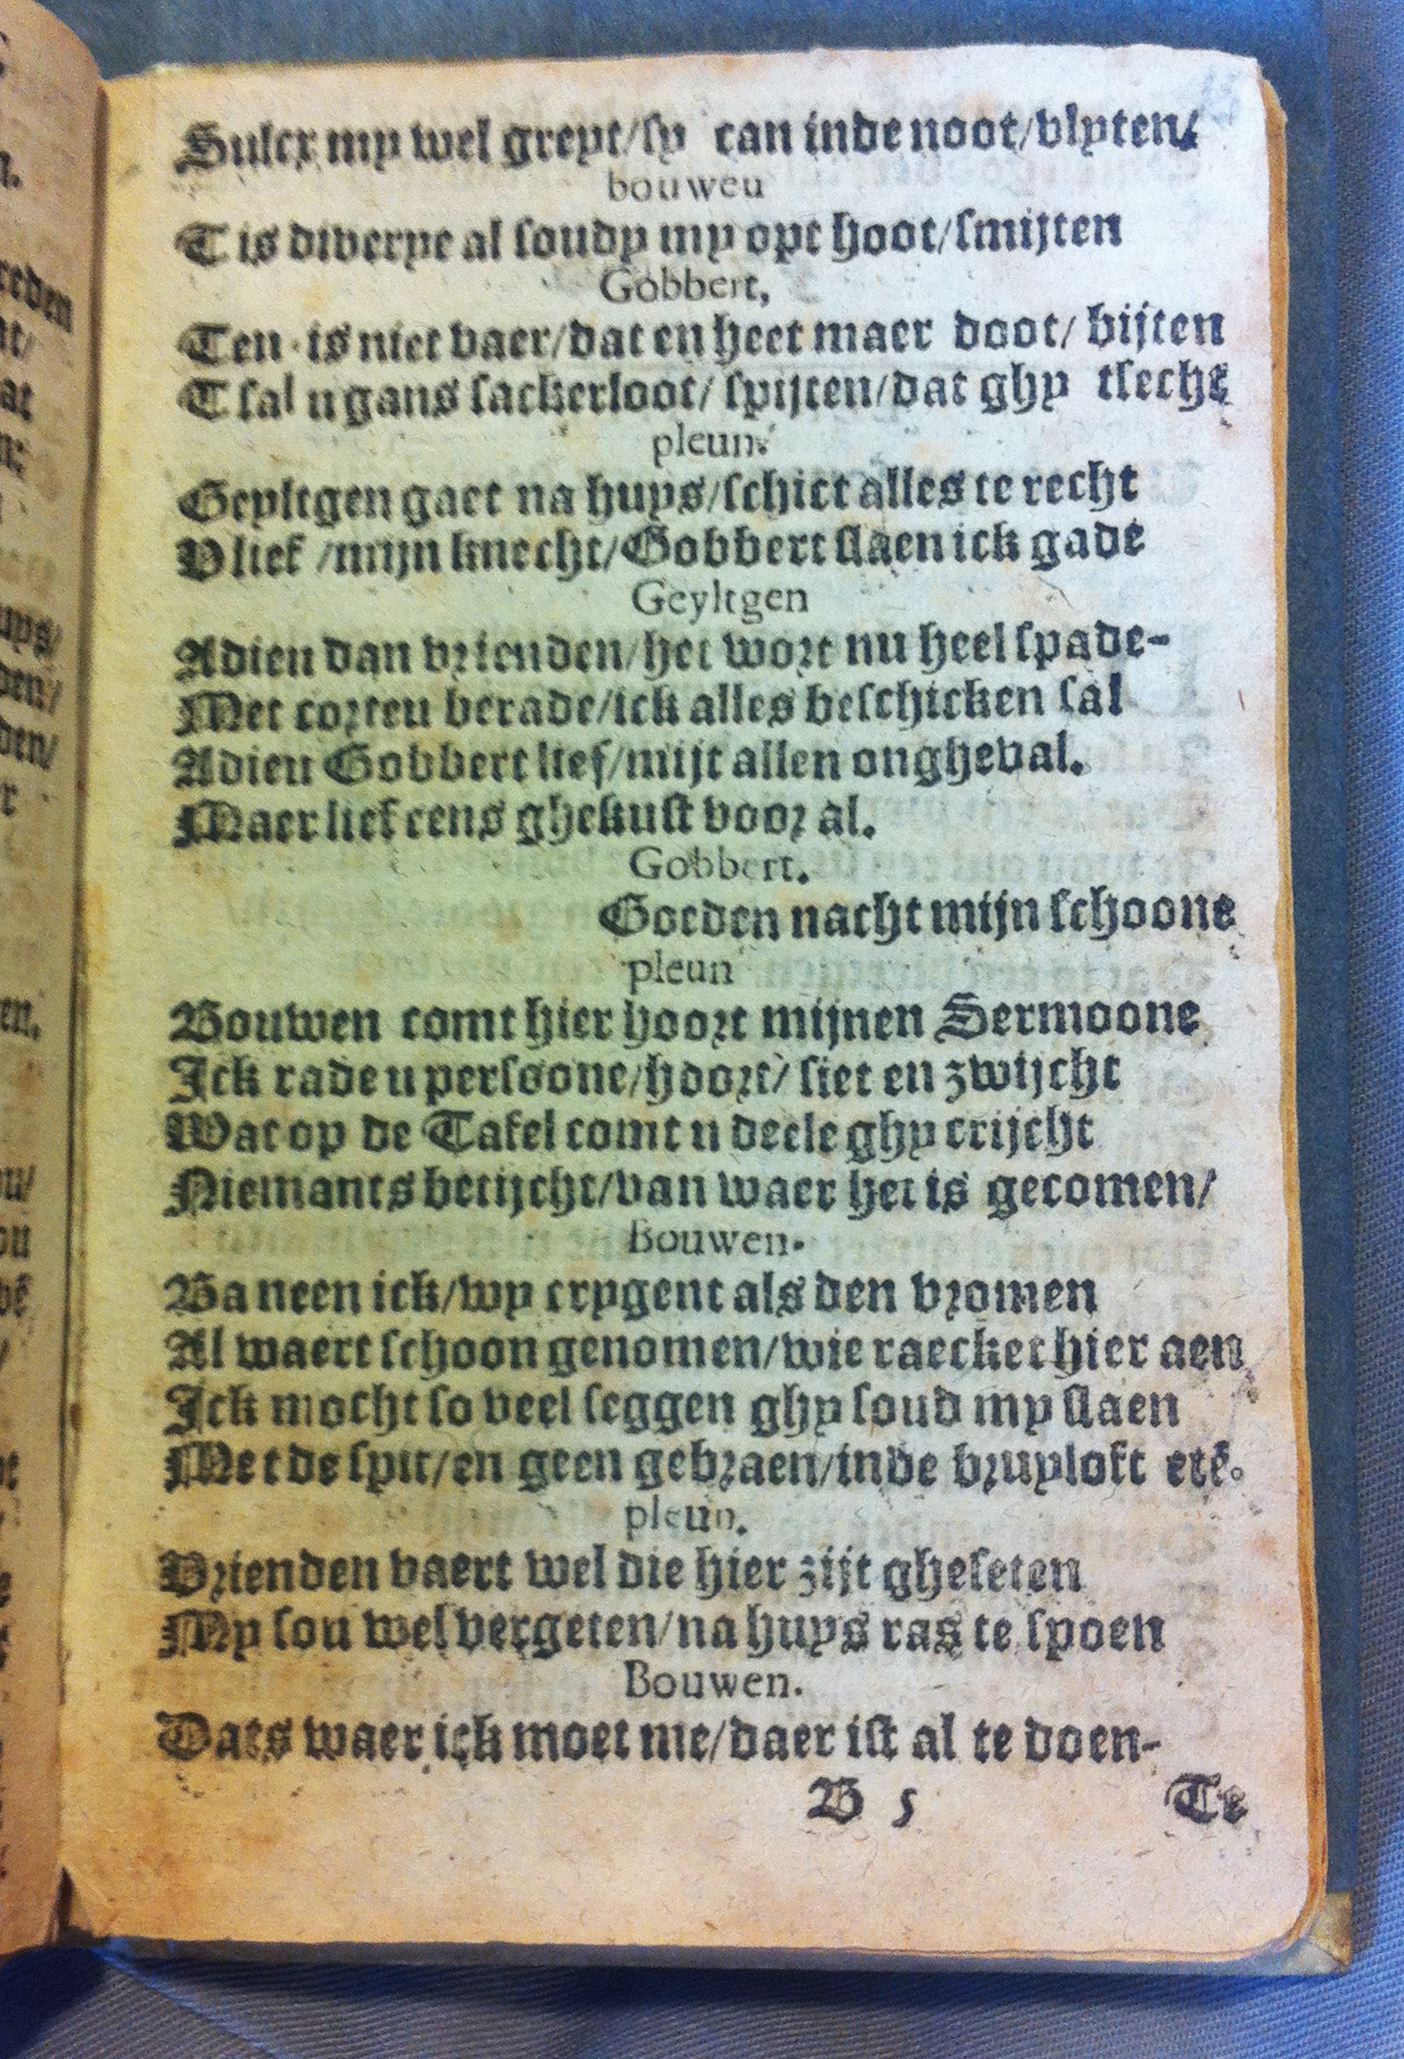 Sulcx my wel greyt/sy can inde noot/vlyten/
bouweu
T is dwerye al soudy my opt hoot/smijten
Gobbert,
Ten is niet vaer/dat en heet maer doot/ bijten
T sal u gans sackerloot/ spijten/dat ghy tsecht
pleun.
Geyltgen gaet na huys/schict alles te recht
V lief /mijn knecht/Gobbert slaen ick gade
Geyltgen
Adieu dan vrienden/het wort nu heel spade-
Met corteu berade/ick alles beschicken sal
Adieu Gobbert lief/mijt allen ongheval.
Maer lief eens ghekust voor al.
Gobbert.
Goeden nacht mijn schoone
pleun
Bouwen comt hier hoort mijnen Sermoone
Ick rade u persoone/hoort/ siet en zwijcht
Wat op de Tafel comt u deele ghy crijcht
Niemants betijcht/van waer het is gecomen/
Bouwen.
Ba neen ick/wy crygent als den vromen
Al waert schoon genomen/wie raecket hier aen
Ick mocht so veel seggen ghy soud my slaen
Met de spit/en geen gebraen/inde bruyloft etē.
pleun.
Vrienden vaert wel die hier zijt gheseten
My sou wel vergeten/na huys ras te spoen
Bouwen.
Dats waer ick moet me/daer ist al te doen-
B 5 Te